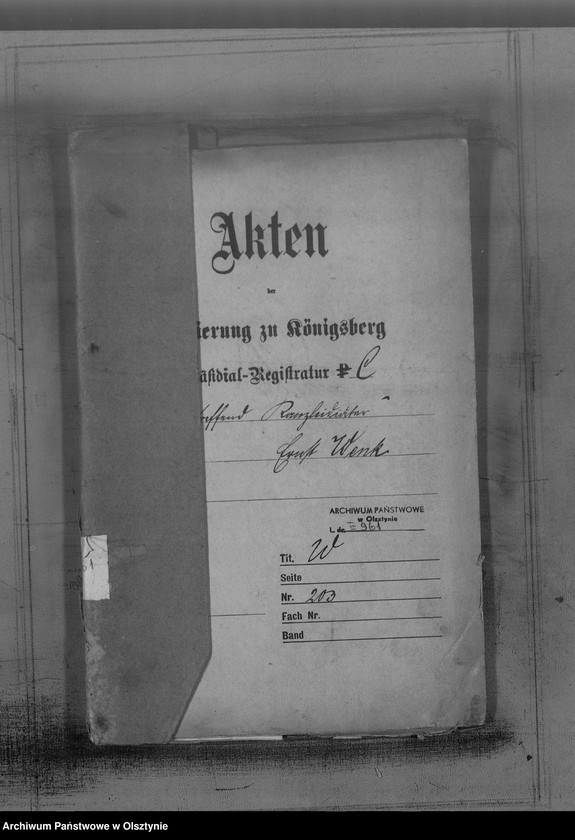 Akten
der
ierung zu Königsberg
äsidial-Registratur P C
effend Kanzleidiätar
Ernst Wenk
ARCHIWUM PAŃSTWOWE
w Olsztynie
L. dz. I 961
Tit. W
Seite
Nr. 203
Fach Nr.
Band
Archiwum Państwowe w Olsztynie